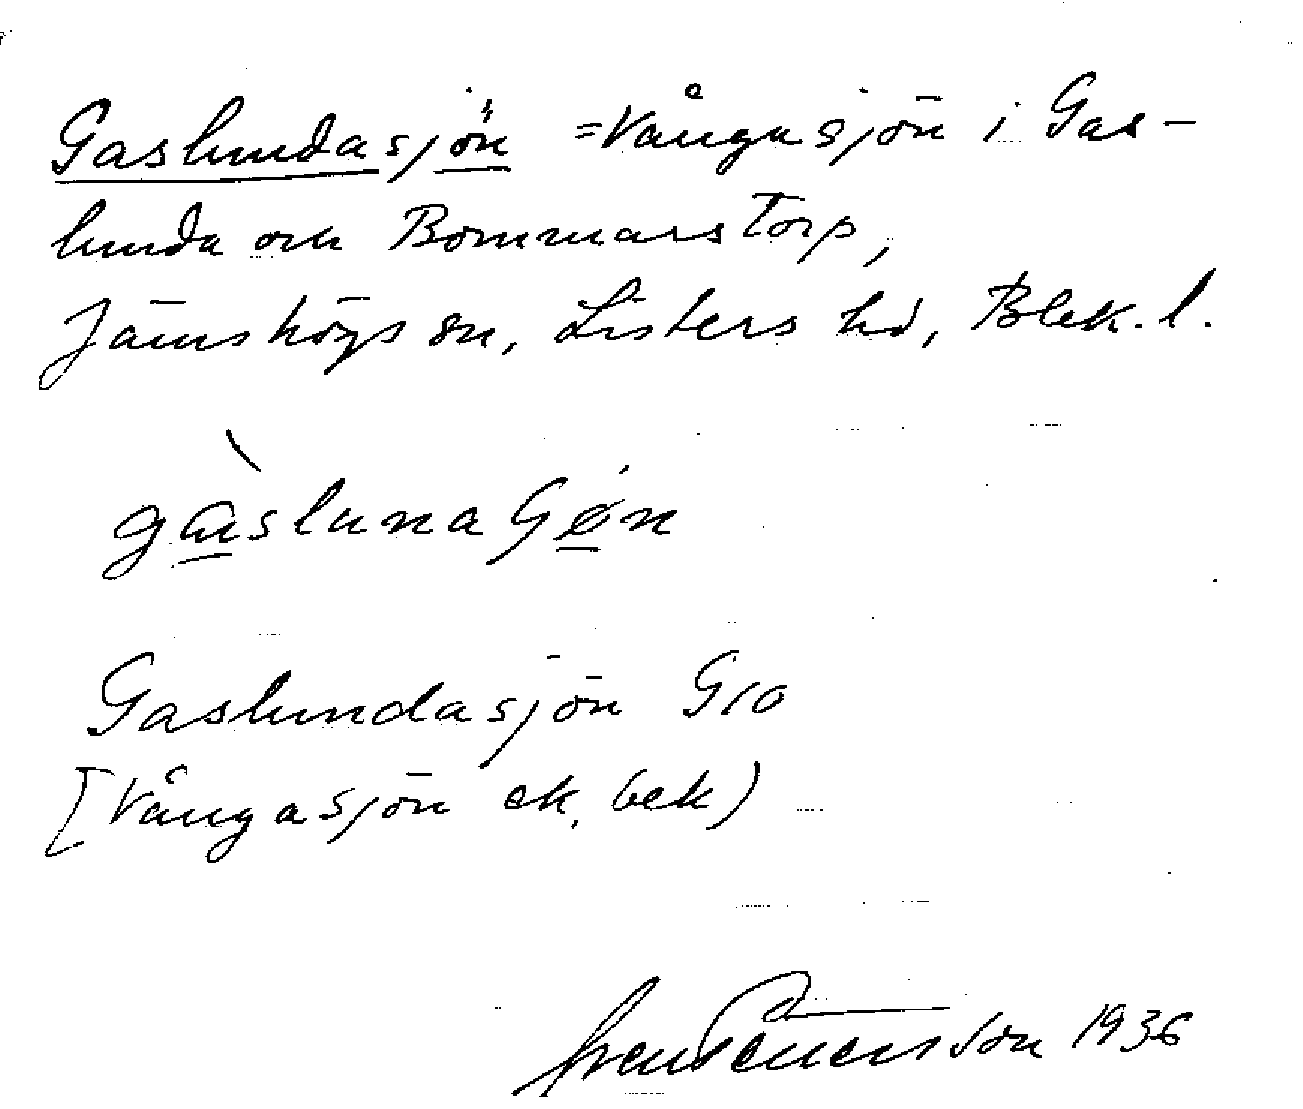 Gaslundasjön =Vångasjön i Gas-
lunda och Bommarstorp,
Jämshögs sn, Listers hd, Blek. l.
gàslunaʃøn
Gaslundasjön G10
[Vångasjön ek. bek)
1936